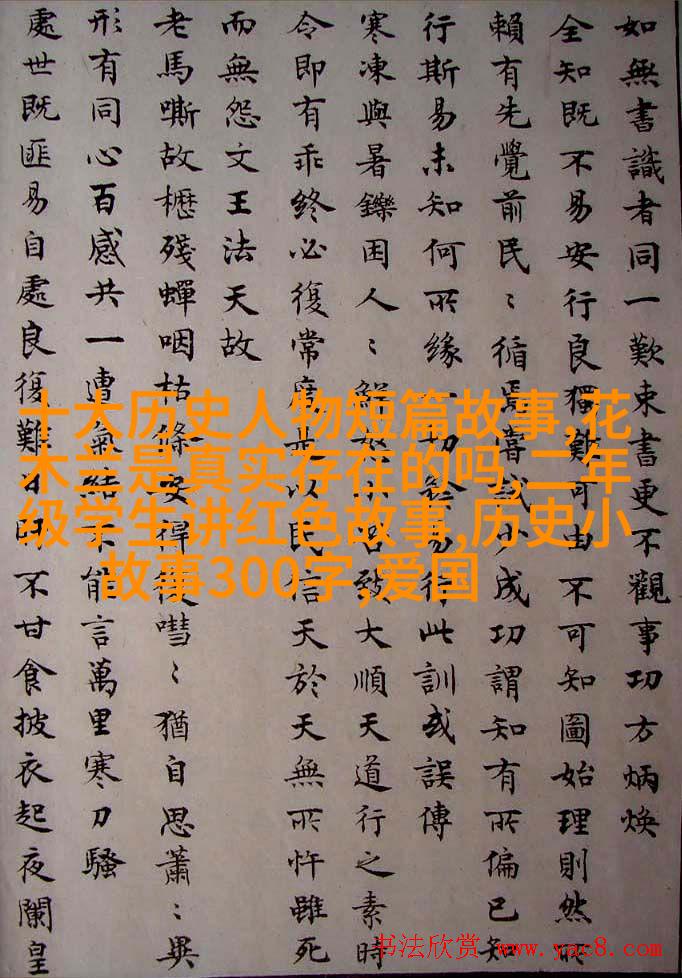 如無書識者同一歎束書更不觀事功方炳煥
全知既不易安行良獨難可由不可知圖始理則然所
賴有先覺前民〻循焉嘗試少成功謂知有所偏已知
行斯易未知何所緣一切易行此訓或誤傳
寒凍與暑鑠困人〻鮮怒小咎致大順天道行之素時
令即有乖終必復常度是以民信天於天無所忤雖死
而無怨文王法天故
老馬嘶故櫪殘蟬咽枯條安得復嘒〻猶自思蕭〻異
形有同心百感共一遭氣結不能言萬里寒刀騷
處世既匪易自處良復難不甘食披衣起夜闌皇
十大历史人物短篇故事,花
木兰是真实存在的吗,二年
级学生讲红色故事,历史小
故事300字,爱国
书法欣赏 www.yac8.com